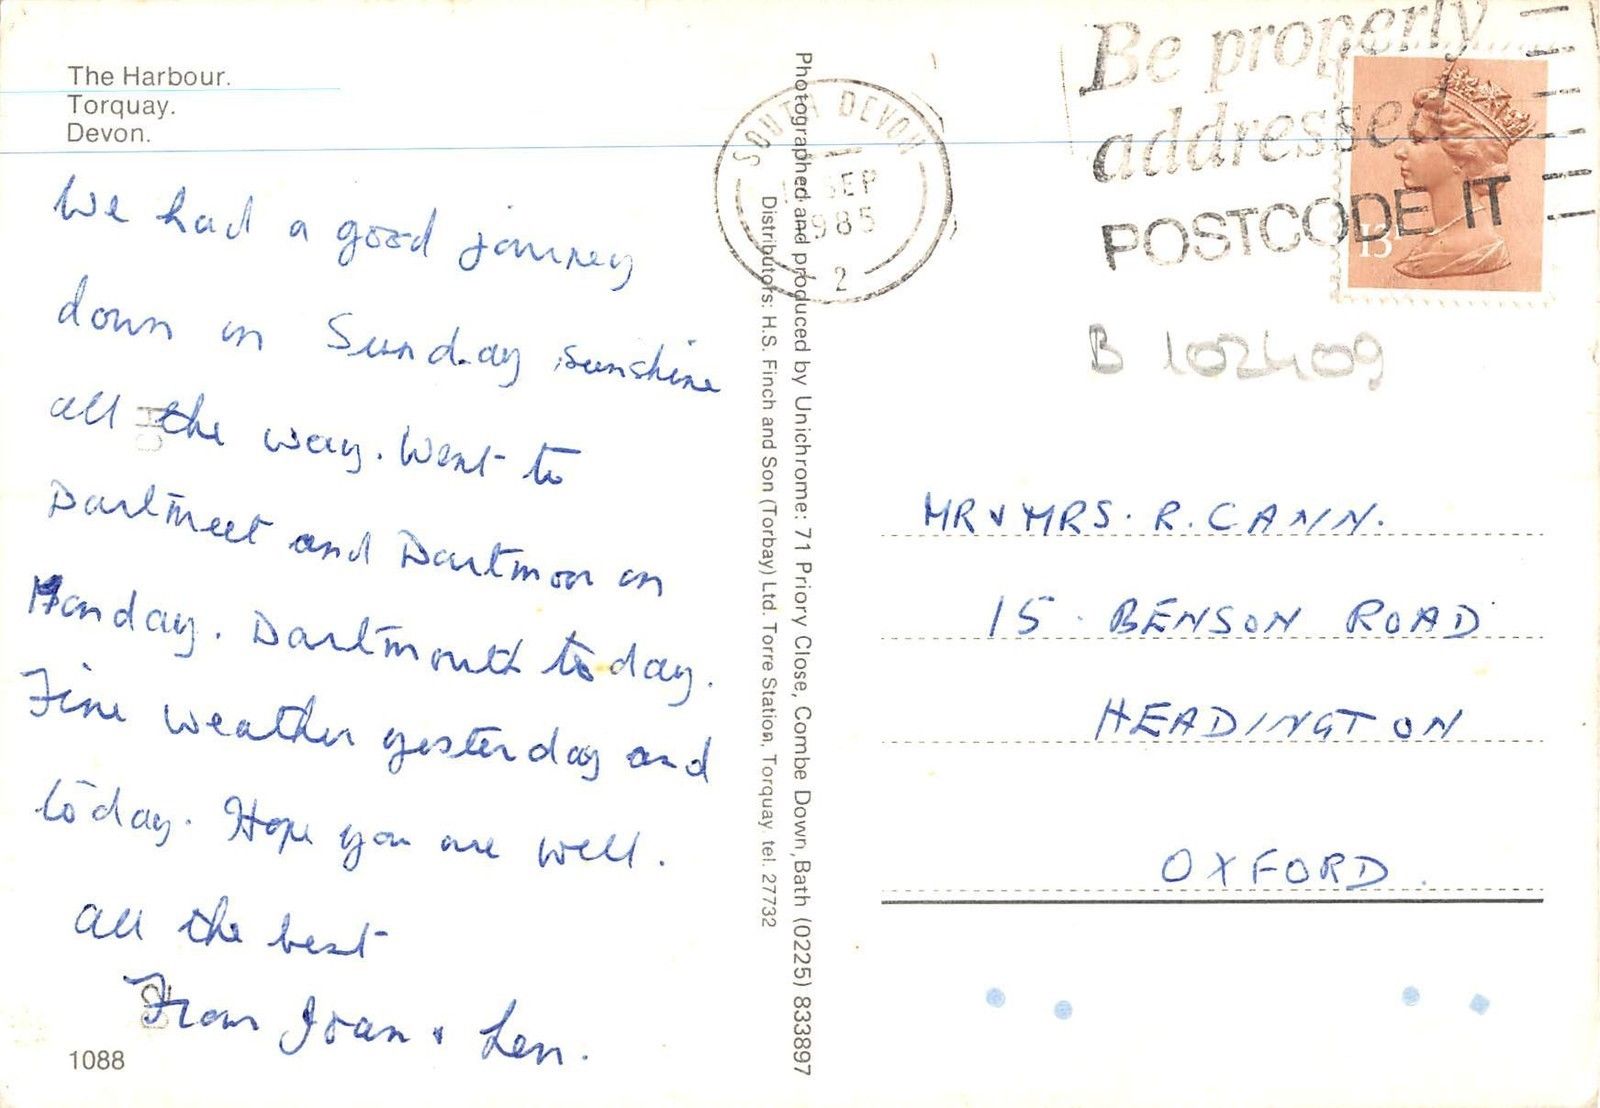 The Harbour.
Torquay.
Devon.
We had a good journey
down on Sunday sunshine
all the way. Went to
Dartmeet and Dartmoor on
Monday. Dartmouth today.
Fine weather yesterday and
today. Hope you are well.
All the best
From Joan & Len.
1088
Photographed and produced by Unichrome: 71 Priory Close, Combe Down, Bath (0225) 833897
Distributors: H.S. Finch and Son (Torbay) Ltd. Torre Station, Torquay. tel. 27732
SOUTH DEVON
SEP
1985
2
Be properly
addressed
POSTCODE IT
13
B 102409
MR & MRS. R. CANN.
15. BENSON ROAD
HEADINGTON
OXFORD.